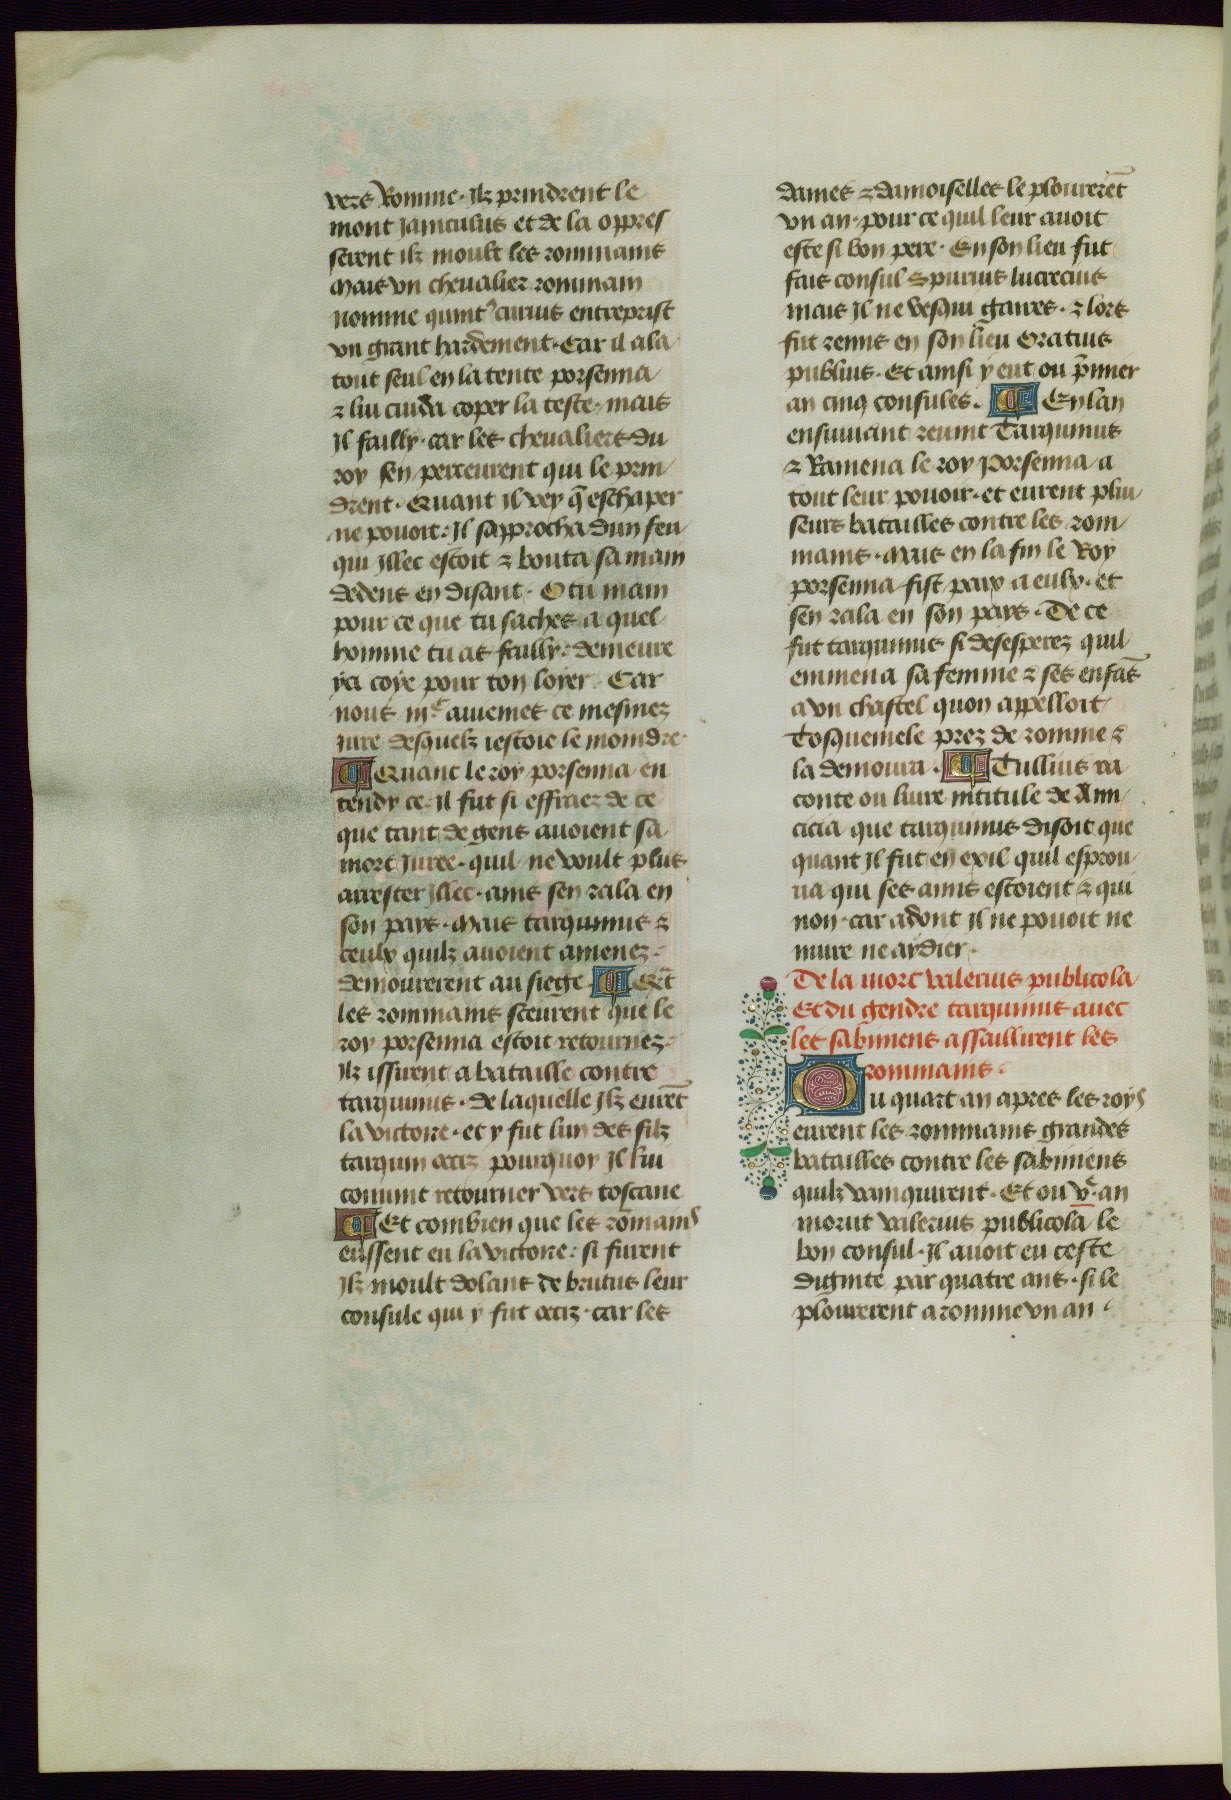 vers Romme · Ilz prindrent le
mont Janiculus et de la oppres
serent ilz moult les rommains
Mais vn cheualier rommain
nomme quint9 curius entreprist
vn grant hardement · Car il ala
tout seul en la tente porsenna
⁊ lui cuida coper la teste · mais
Il failly · car les cheualiers du
roy sen perceurent qui le prin
drent · Quant il vey q̃ eschaper
ne pouoit : Il sapprocha dun feu
qui Illec estoit ⁊ bouta sa main
dedens en disant · O tu main
pour ce que tu saches a quel
homme tu as failly : demeure
ycy coye pour ton loyer · Car
nous iijᶜ auiemes ce mesmez
iure desquelz iestoie le moindre ·
¶ Quant le roy porsenna en
tendy ce · il fut si effraez de ce
que tant de gens auoient sa
mort Juree · quil ne voult plus
arrester Illec · ains sen rala en
son pays · Mais tarquinius ⁊
ceulx quilz auoient amenez ·
demourerent au siege · ¶ Et
les rommains sceurent que le
roy porsenna estoit retournez ·
Ilz issirent a bataille contre
tarquinius · de laquelle Ilz eurẽt
la victoire · et y fut lun des filz
tarquin occiz pourquoy Il lui
conuint retourner vers toscane
¶ Et combien que les romains
eussent eu la victoire : si furent
Ilz moult dolans de brutus leur
consule qui y fut occiz · car les
dames ⁊ damoiselles le plourerẽt
vn an · pour ce quil leur auoit
este si bon pere · En son lieu fut
fais consul Spurius lucrecius
mais Il ne vesqui gaires · ⁊ lors
fut remis en son lieu Oratius
publius · Et ainsi y eut ou p̃mier
an cinq consules · ¶ En lan
ensuiuant reuint Tarquinus
⁊ Ramena le roy Porsenna a
tout leur pouoir · et eurent plui
seurs batailles contre les rom
mains · Mais en la fin le Roy
porsenna fist paix a eulx · et
sen rala en son pays · De ce
fut tarquinius si desesperez quil
emmena sa femme ⁊ ses enfãs
a vn chastel quon appelloit
Tosquemele prez de romme ⁊
la demoura · ¶ Tullius ra
conte ou liure intitule de Ami
cicia que tarquinius disoit que
quant Il fut en exil quil esprou
ua qui ses amis estoient ⁊ qui
non · car adont il ne pouoit ne
nuire ne aydier ·
De la mort valerius publicola
Et du gendre tarquinius auec
les sabiniens assaillirent les
rommains ·
Ou quart an apres les roys
eurent les rommains grandes
batailles contre les sabiniens
quilz vainquirent · Et ou vᵉ an
morut valerius publicola le
bon consul · Il auoit eu ceste
dignite par quatre ans · si le
plourerent a romme vn an ·